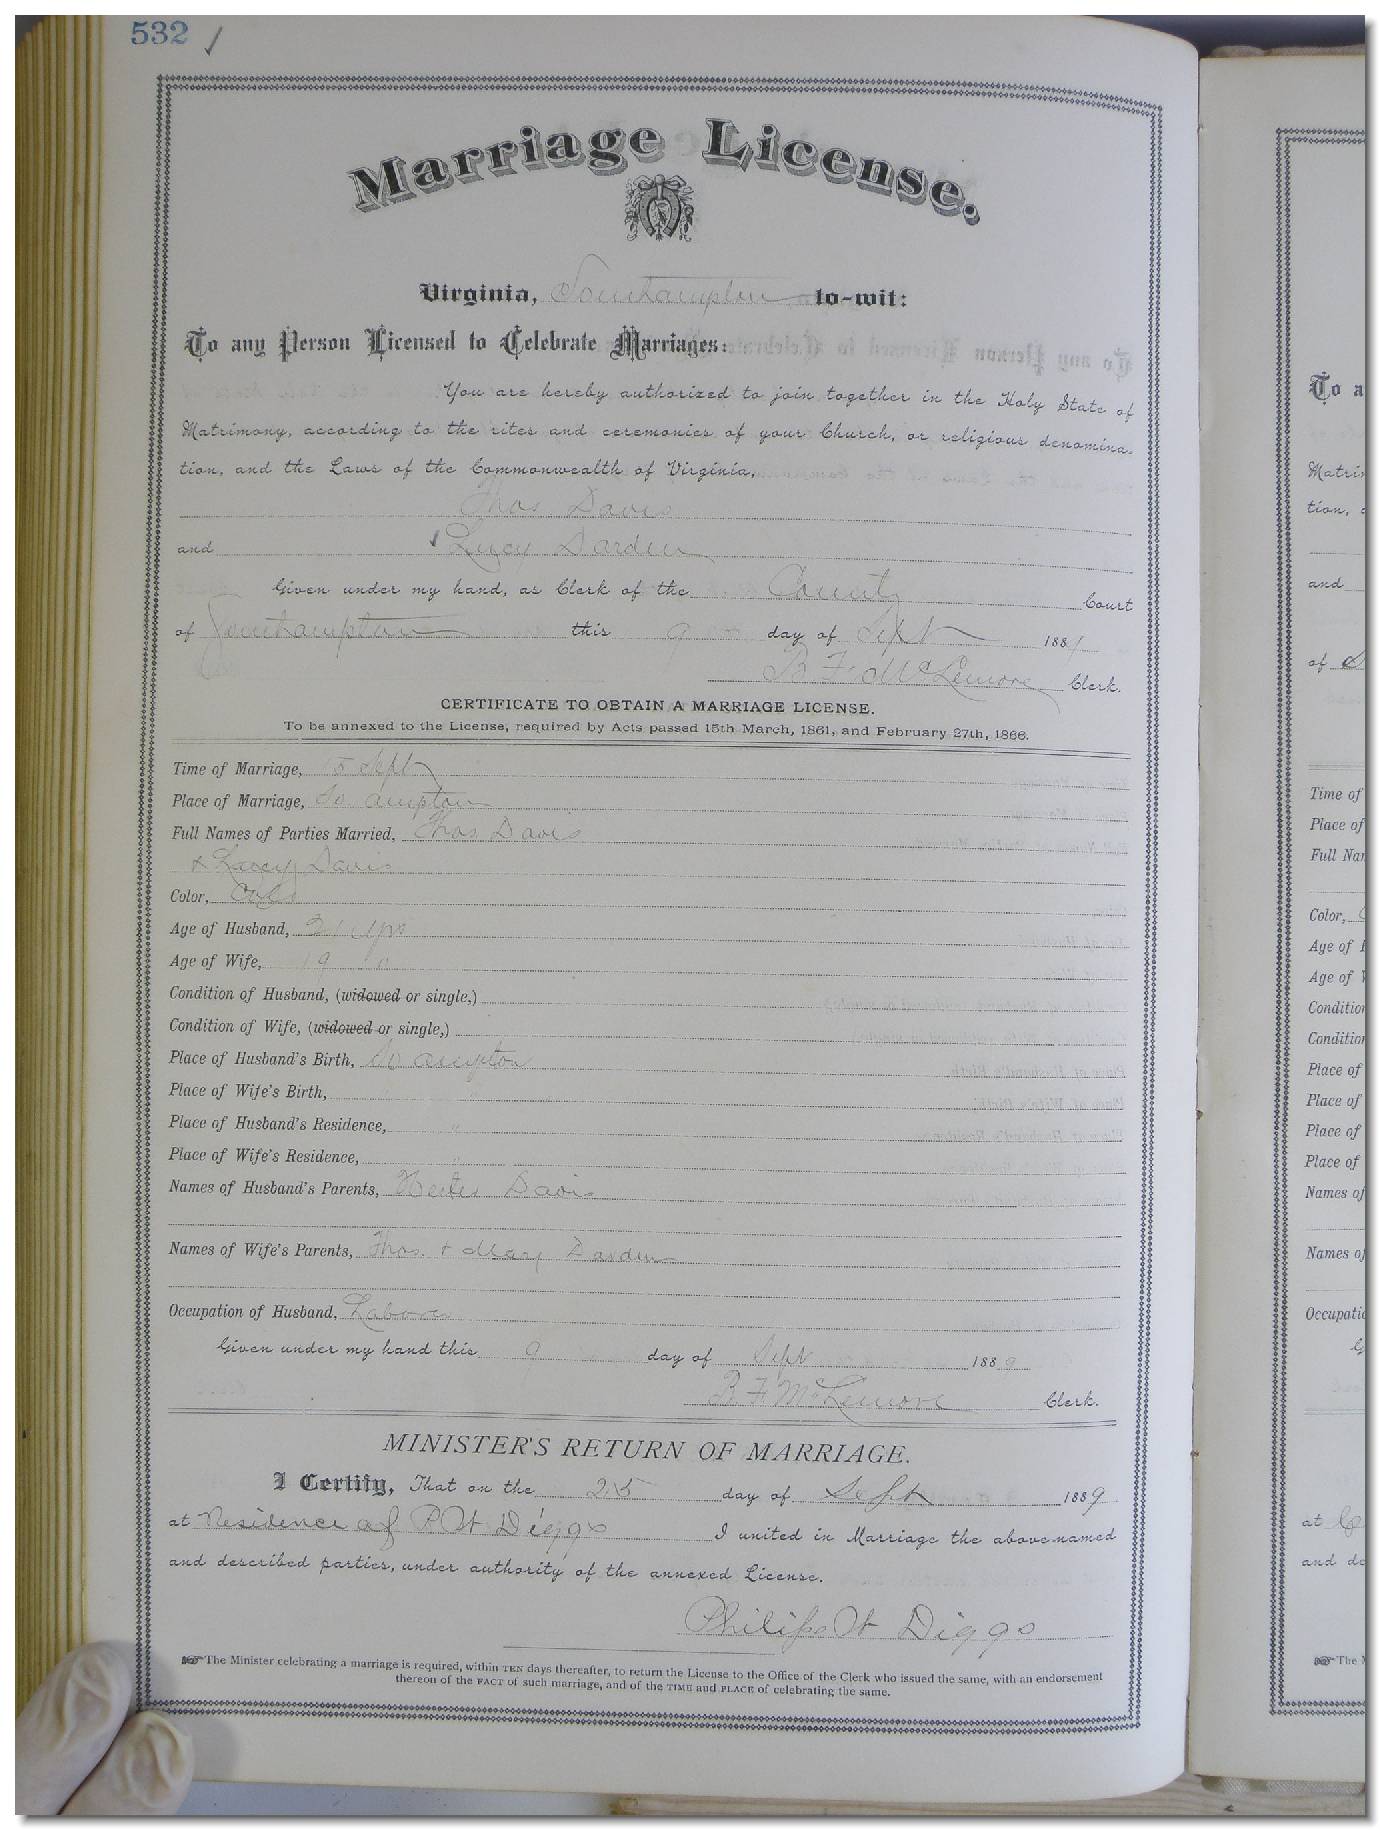 532 ✓
Marriage License.
Virginia, Southampton to-wit:
To any Person Licensed to Celebrate Marriages:
You are hereby authorized to join together in the Holy State of
Matrimony, according to the rites and ceremonies of your Church, or religious denomina-
tion, and the Laws of the Commonwealth of Virginia,
Thos Davis
and Lucy Darden
Given under my hand, as Clerk of the County Court
of Southampton this 9 day of Sept 188
B. F. McLemore Clerk.
CERTIFICATE TO OBTAIN A MARRIAGE LICENSE.
To be annexed to the License, required by Acts passed 15th March, 1861, and February 27th, 1866.
Time of Marriage, 15 Sept
Place of Marriage, So ampton
Full Names of Parties Married, Thos Davis
& Lucy Davis
Color, Cold
Age of Husband, 21 yrs
Age of Wife, 19 "
Condition of Husband, (widowed or single,)
Condition of Wife, (widowed or single,)
Place of Husband's Birth, So ampton
Place of Wife's Birth, "
Place of Husband's Residence, "
Place of Wife's Residence, "
Names of Husband's Parents, Davis
Names of Wife's Parents, Thos. & Mary Darden
Occupation of Husband, Laborer
Given under my hand this 9 day of Sept 1889
B. F. McLemore Clerk.
MINISTER'S RETURN OF MARRIAGE.
I Certify, That on the 25 day of Sept 1889
at Residence of P W Diggs I united in Marriage the above-named
and described parties, under authority of the annexed License.
Philip W Diggs
☞ The Minister celebrating a marriage is required, within TEN days thereafter, to return the License to the Office of the Clerk who issued the same, with an endorsement
thereon of the FACT of such marriage, and of the TIME and PLACE of celebrating the same.
To a
Matri
tion,
and
of
Time of
Place of
Full Nar
Color,
Age of
Age of
Condition
Condition
Place of
Place of
Place of
Place of
Names of
Names of
Occupatio
at
and de
☞ The